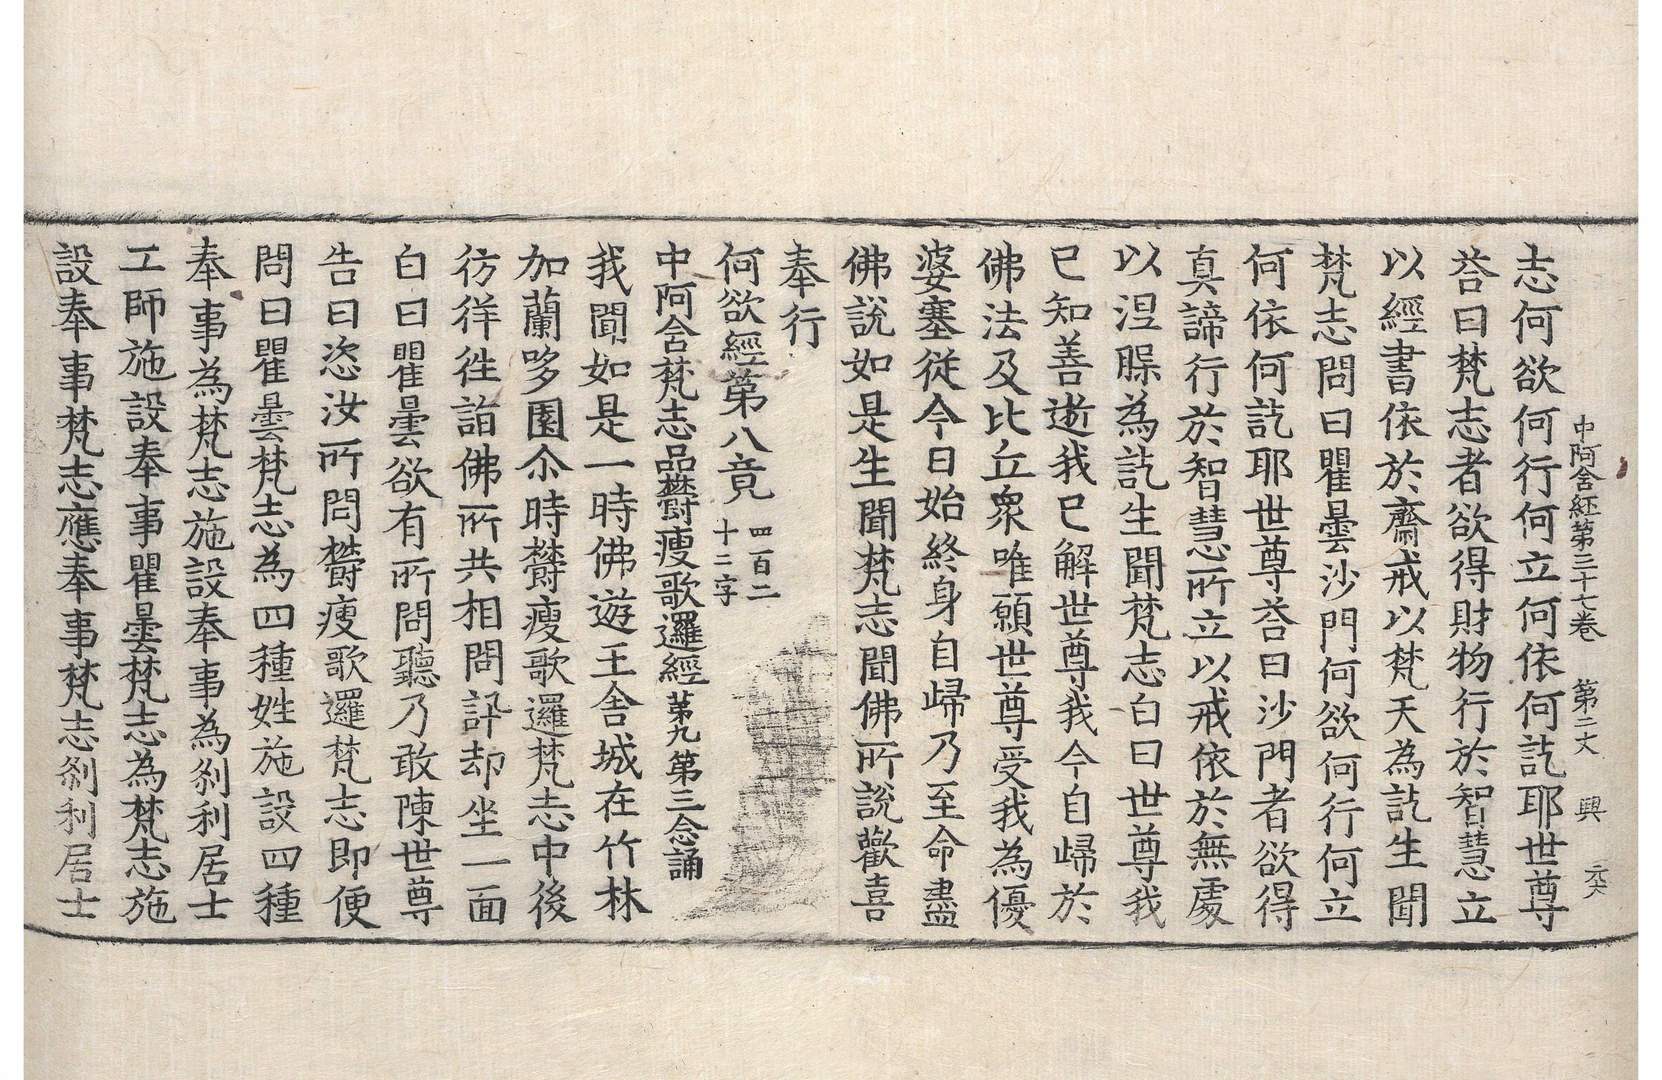 中阿含経第三十七卷 第二丈 興
志何欲何行何立何依何訖耶世尊
荅曰梵志者欲得財物行於智慧立
以經書依於齋戒以梵天為訖生聞
梵志問曰瞿曇沙門何欲何行何立
何依何訖耶世尊荅曰沙門者欲得
真諦行於智慧所立以戒依於無處
以涅槃為訖生聞梵志白曰世尊我
已知善逝我已解世尊我今自歸於
佛法及比丘衆唯願世尊受我為優
婆塞從今日始終身自歸乃至命盡
佛說如是生聞梵志聞佛所說歡喜
奉行
何欲經第八竟 四百二十二字
中阿含梵志品欝瘦歌邏經第九第三念誦
我聞如是一時佛遊王舍城在竹林
加蘭哆園尒時欝瘦歌邏梵志中後
彷徉徃詣佛所共相問訊却坐一面
白曰瞿曇欲有所問聽乃敢陳世尊
告曰恣汝所問欝瘦歌邏梵志即便
問曰瞿曇梵志為四種姓施設四種
奉事為梵志施設奉事為刹利居士
工師施設奉事瞿曇梵志為梵志施
設奉事梵志應奉事梵志刹利居士